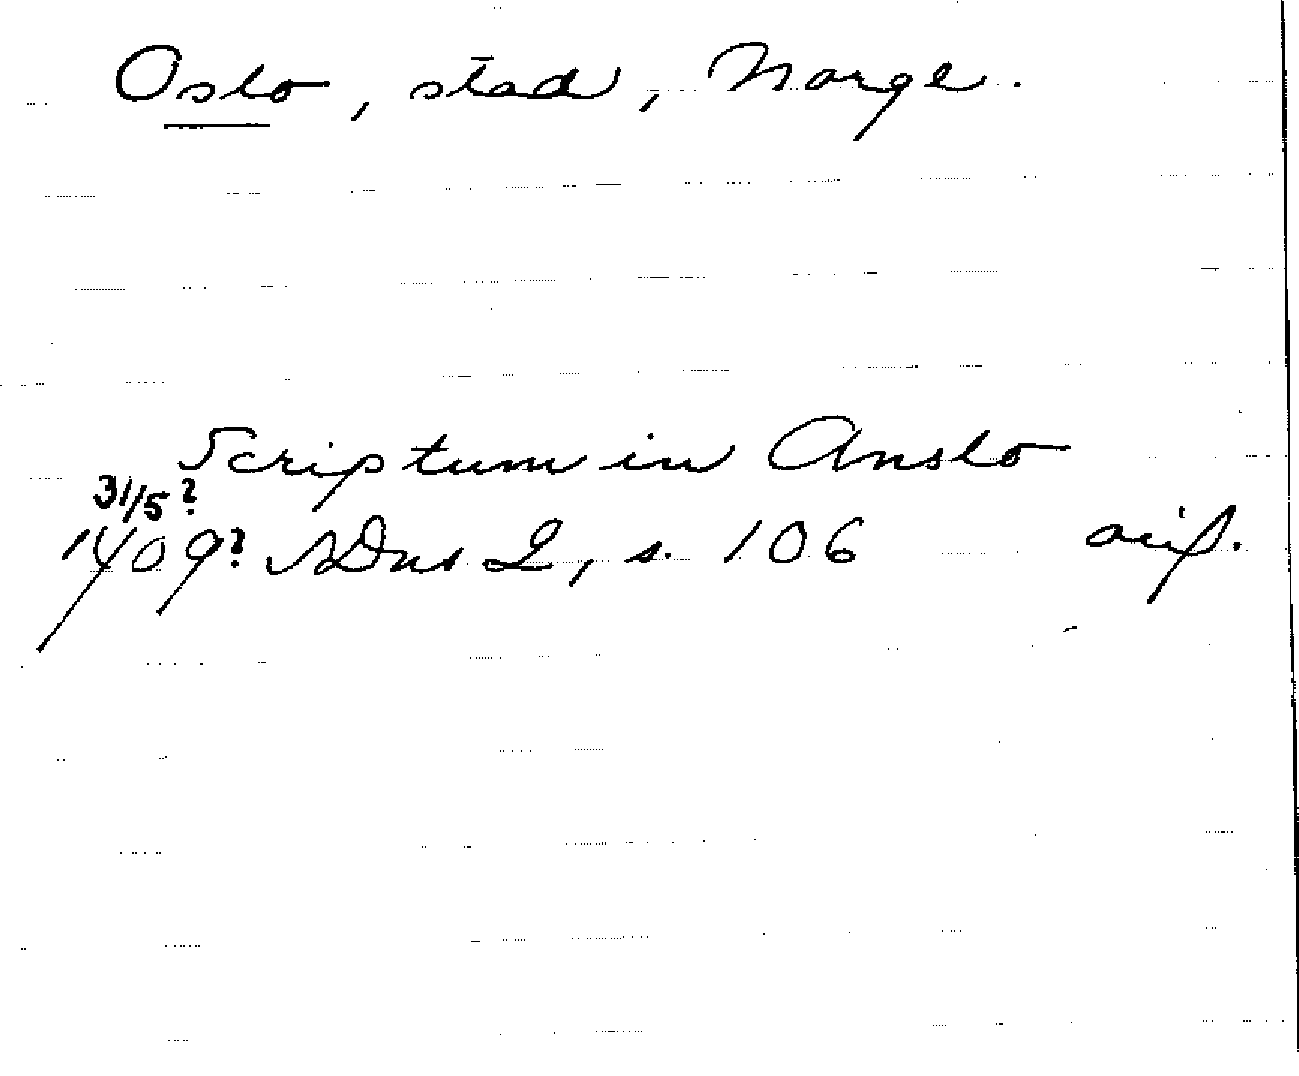 Oslo, stad, Norge.
Scriptum in Anslo
31/5?
1409? SDns 2, s. 106 avsf.